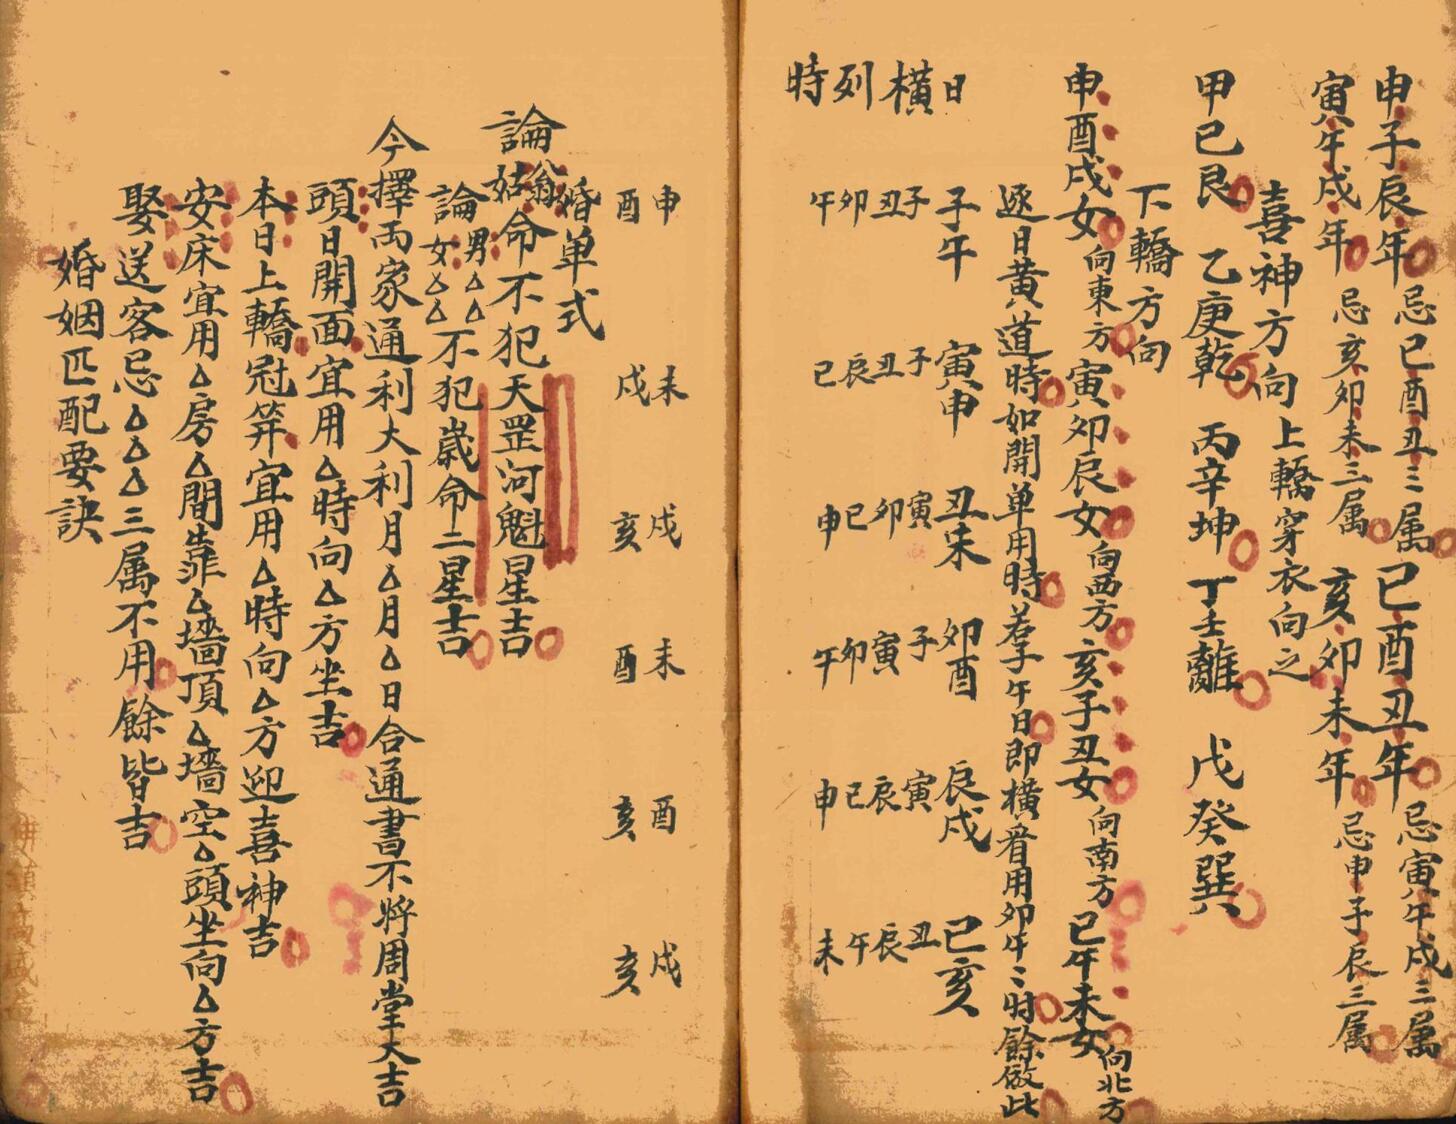 申子辰年忌巳酉丑三属　巳酉丑年忌寅午戌三属
寅午戌年忌亥卯未三属　亥卯未年忌申子辰三属
喜神方向上轎穿衣向之
甲己艮　乙庚乾　丙辛坤　丁壬離　戊癸巽
下轎方向
申酉戌女向東方寅卯辰女向西方亥子丑女向南方巳午未女向北方
逐日黄道時如開单用時若子午日即横看用卯午〻时餘倣此
日　子午　寅申　丑未　卯酉　辰戌　巳亥
横　子丑　子丑　寅卯　子寅　寅辰　丑辰
列時　卯午　辰巳　巳申　卯午　巳申　午未
申　未　戌　未　酉　戌
酉　戌　亥　酉　亥　亥
婚单式
論翁姑命不犯天罡河魁星吉
論男△△女△△不犯歳命二星吉
今擇両家通利大利月△月△日合通書不将周堂大吉
頭日開面宜用△時向△方坐吉
本日上轎冠笄宜用△時向△方迎喜神吉
安床宜用△房△間靠△墻頂△墻空△頭坐向△方吉
娶送客忌△△△三属不用餘皆吉
婚姻匹配要訣